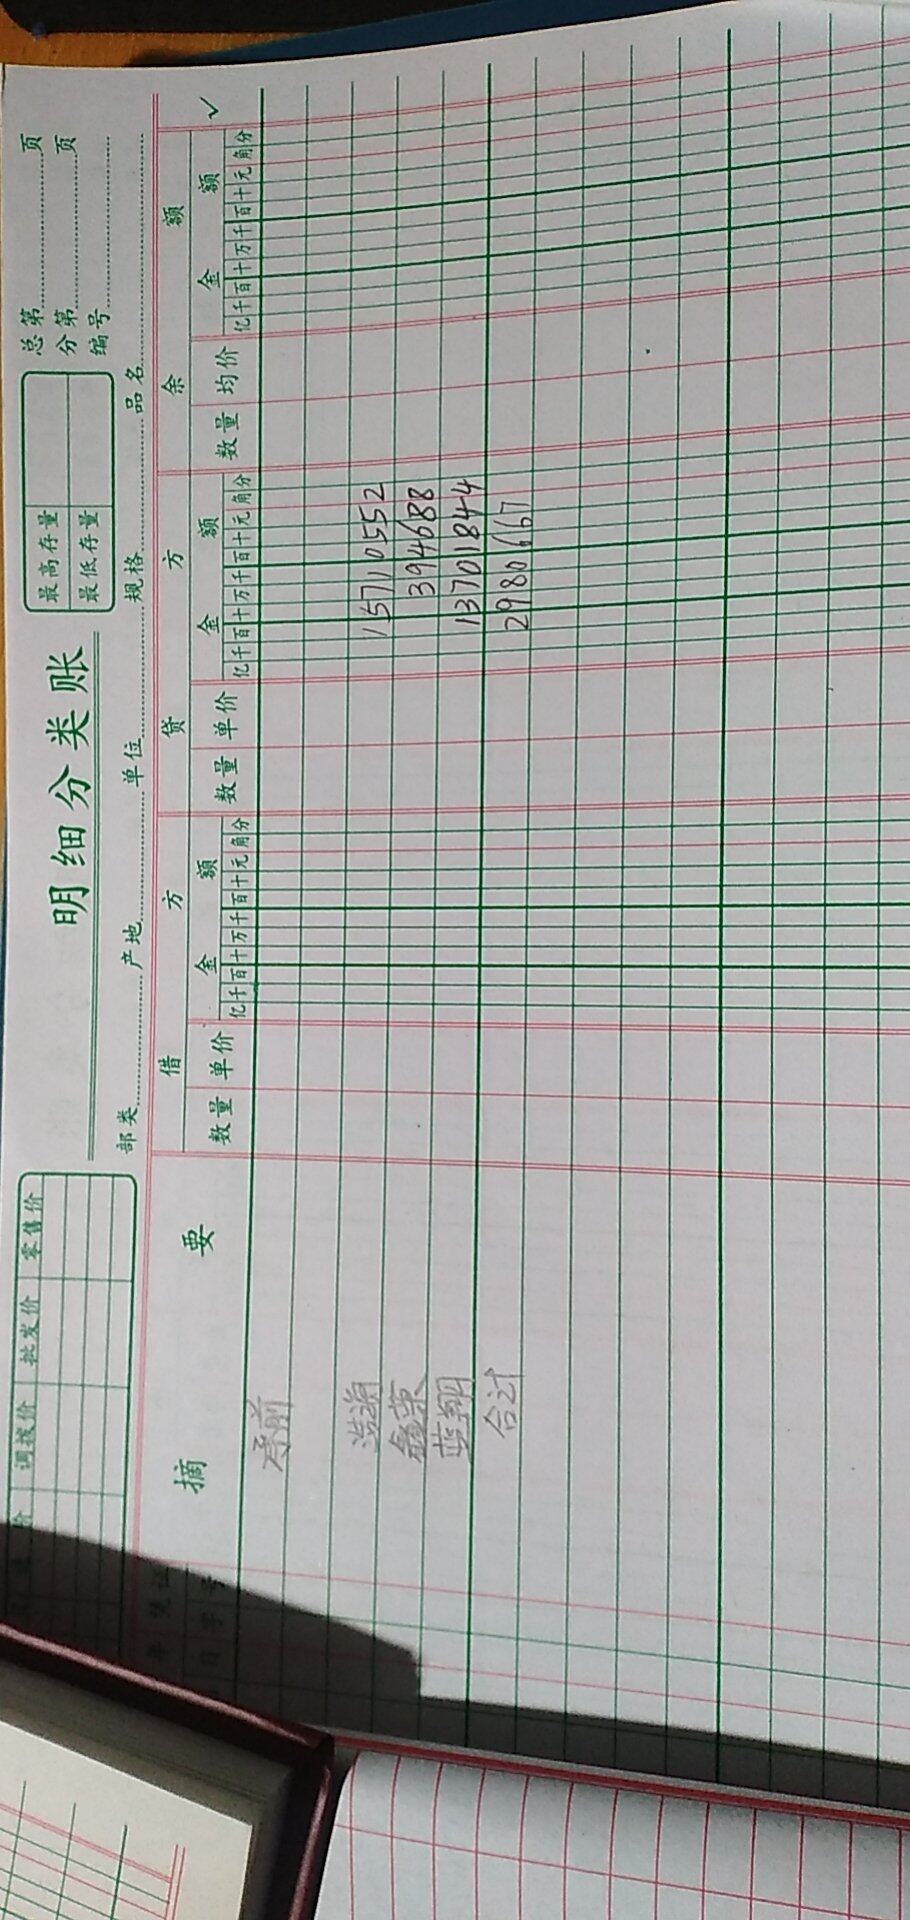 明细分类账
总第 页
分第 页
编号
最高存量
最低存量
调拨价 批发价 零售价
部类 产地 单位 规格 品名
摘 要 借 方 贷 方 余 额 ✓
数量 单价 金 额 数量 单价 金 额 数量 均价 金 额
亿千百十万千百十元角分 亿千百十万千百十元角分 亿千百十万千百十元角分
承前
浩瀚 15710552
鑫荣 394688
蓝翔 13701844
合计 2980667